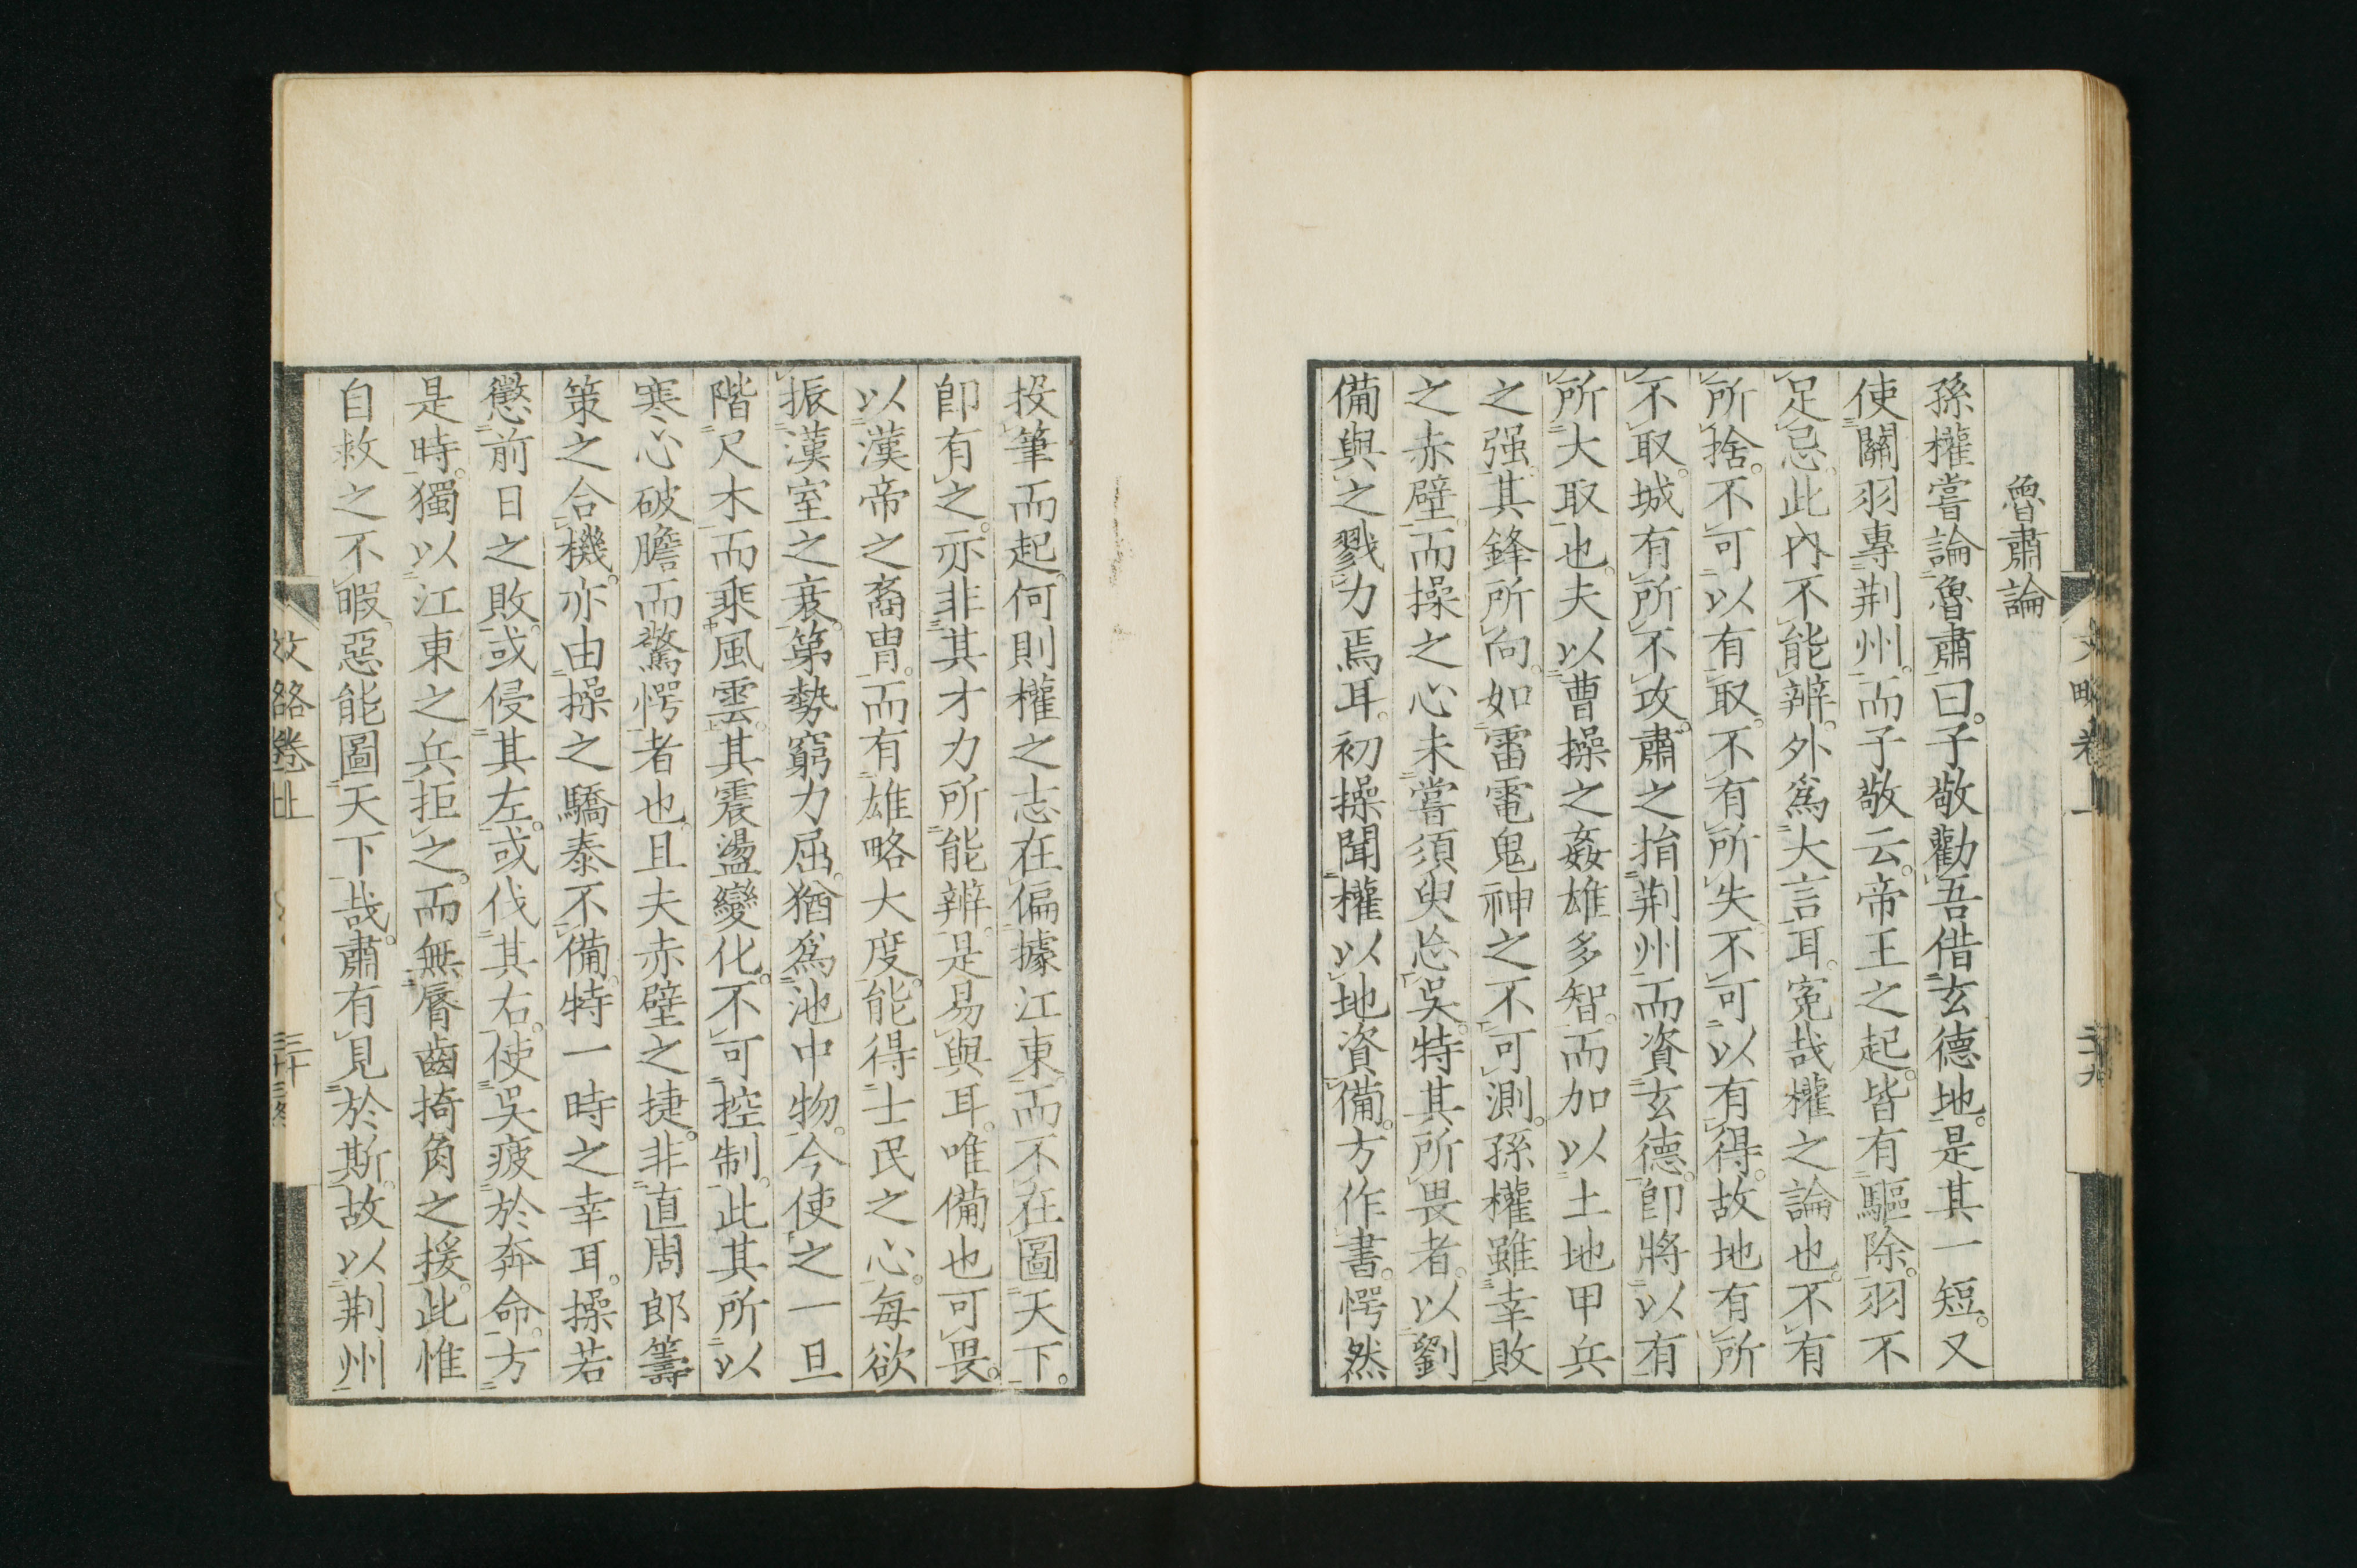 魯肅論
孫權嘗論魯肅曰。子敬勸吾借玄德地。是其一短。又
使關羽專荆州。而子敬云。帝王之起。皆有驅除。羽不
足忌。此內不能辨。外爲大言耳。寃哉權之論也。不有
所捨。不可以有取。不有所失。不可以有得。故地有所
不取。城有所不攻。肅之捐荆州而資玄德。卽將以有
所大取也。夫以曹操之姦雄多智。而加以土地甲兵
之强。其鋒所向。如雷電鬼神之不可測。孫權雖幸敗
之赤壁。而操之心未嘗須臾忘吳。特其所畏者。以劉
備與之戮力焉耳。初操聞權以地資備。方作書。愕然
投筆而起。何則權之志在偏據江東。而不在圖天下。
卽有之。亦非其才力所能辨。是易與耳。唯備也可畏。
以漢帝之裔冑。而有雄略大度。能得士民之心。每欲
振漢室之衰。第勢窮力屈。猶爲池中物。今使之一旦
階尺木而乘風雲。其震盪變化。不可控制。此其所以
寒心破膽而驚愕者也。且夫赤壁之捷。非直周郎籌
策之合機。亦由操之驕泰不備。特一時之幸耳。操若
懲前日之敗。或侵其左。或伐其右。使吳疲於奔命。方
是時。獨以江東之兵拒之。而無脣齒掎角之援。此惟
自救之不暇。惡能圖天下哉。肅有見於斯。故以荆州
文略卷上
三十